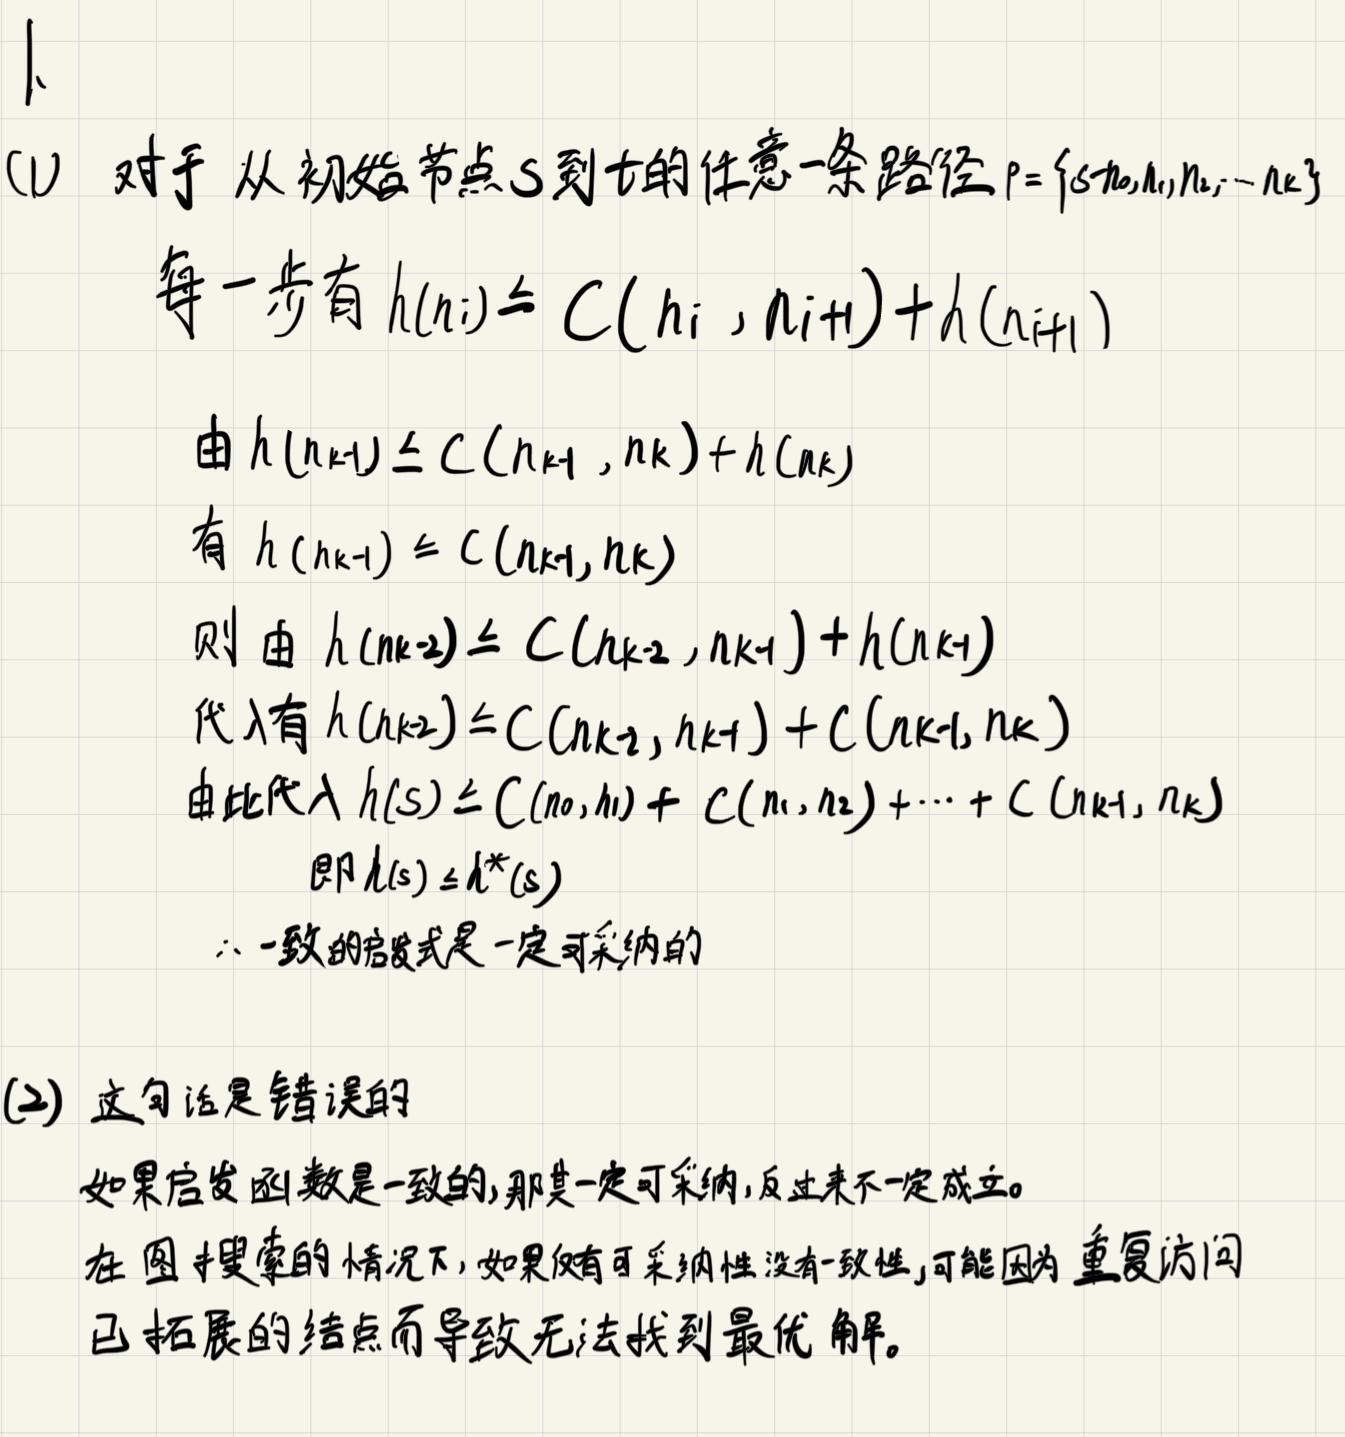 1、
(1) 对于 从初始节点S到t的任意一条路径 P={S=n₀,n₁,n₂,…nₖ}
每一步有 h(nᵢ)≤ C(nᵢ , nᵢ₊₁)+h(nᵢ₊₁)
由 h(nₖ₋₁)≤C(nₖ₋₁ ,nₖ)+h(nₖ)
有 h(nₖ₋₁) ≤ C(nₖ₋₁,nₖ)
则由 h(nₖ₋₂)≤ C(nₖ₋₂,nₖ₋₁)+h(nₖ₋₁)
代入有 h(nₖ₋₂)≤C(nₖ₋₂,nₖ₋₁)+C(nₖ₋₁,nₖ)
由此代入 h(S)≤C(n₀,n₁)+ C(n₁,n₂)+…+ C(nₖ₋₁,nₖ)
即 h(s)≤h*(s)
∴ 一致的启发式是一定可采纳的
(2) 这句话是错误的
如果启发函数是一致的,那其一定可采纳,反过来不一定成立。
在图搜索的情况下,如果仅有可采纳性没有一致性,可能因为重复访问
已拓展的结点而导致无法找到最优解。